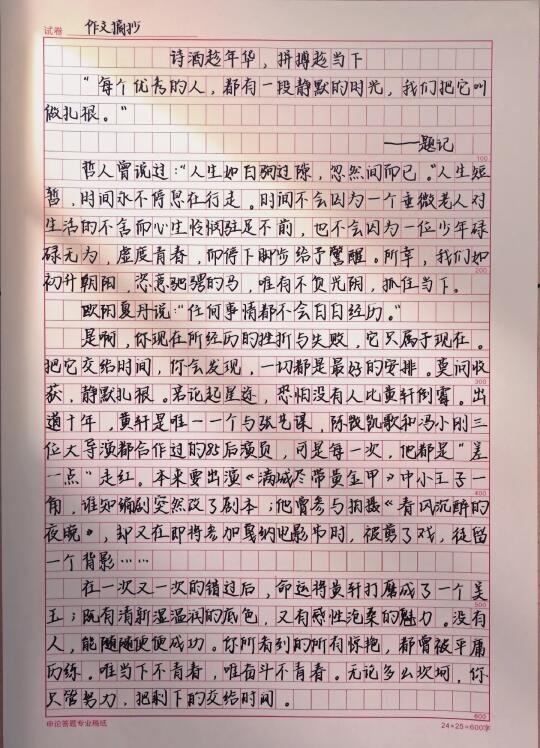 试卷 作文摘抄
诗酒趁年华，拼搏趁当下
“每个优秀的人，都有一段静默的时光，我们把它叫
做扎根。”
——题记
100
哲人曾说过：“人生如白驹过隙，忽然间而已。”人生短
暂，时间永不停息在行走。时间不会因为一个垂微老人对
生活的不舍而心生怜悯驻足不前，也不会因为一位少年碌
碌无为，虚度青春，而停下脚步给予警醒。所幸，我们如
200
初升朝阳，恣意驰骋的马，唯有不负光阴，抓住当下。
欧阳夏丹说：“任何事情都不会白白经历。”
是啊，你现在所经历的挫折与失败，它只属于现在。
把它交给时间，你会发现，一切都是最好的安排。莫问收
300
获，静默扎根。若论起星途，恐怕没有人比黄轩倒霉。出
道十年，黄轩是唯一一个与张艺谋，陈凯歌和冯小刚三
位大导演都合作过的85后演员，可是每一次，他都是“差
一点”走红。本来要出演《满城尽带黄金甲》中小王子一
400
角，谁知编剧突然改了剧本；他曾参与拍摄《春风沉醉的
夜晚》，却又在即将参加戛纳电影节时，被剪了戏，徒留
一个背影……
在一次又一次的错过后，命运将黄轩打磨成了一个美
500
玉；既有清新湿温润的底色，又有感性泡柔的魅力。没有
人，能随随便便成功。你所看到的所有惊艳，都曾被平庸
历练。唯当下不青春，唯奋斗不青春。无论多么坎坷，你
只管努力，把剩下的交给时间。
600
申论答题专业稿纸 24×25=600字